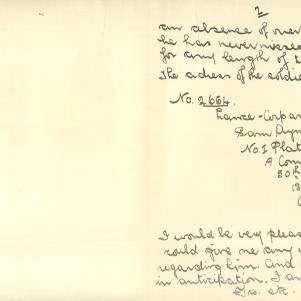 2
an absence of over
he has never misse
for any length of t
The adress of the soldie
No. 2664.
Lance-Corpor
Sam Drym
No. 1 Plat
A Com
I would be very pleas
could give me any
regarding him. And
in anticipation. I am
Yrs. etc.